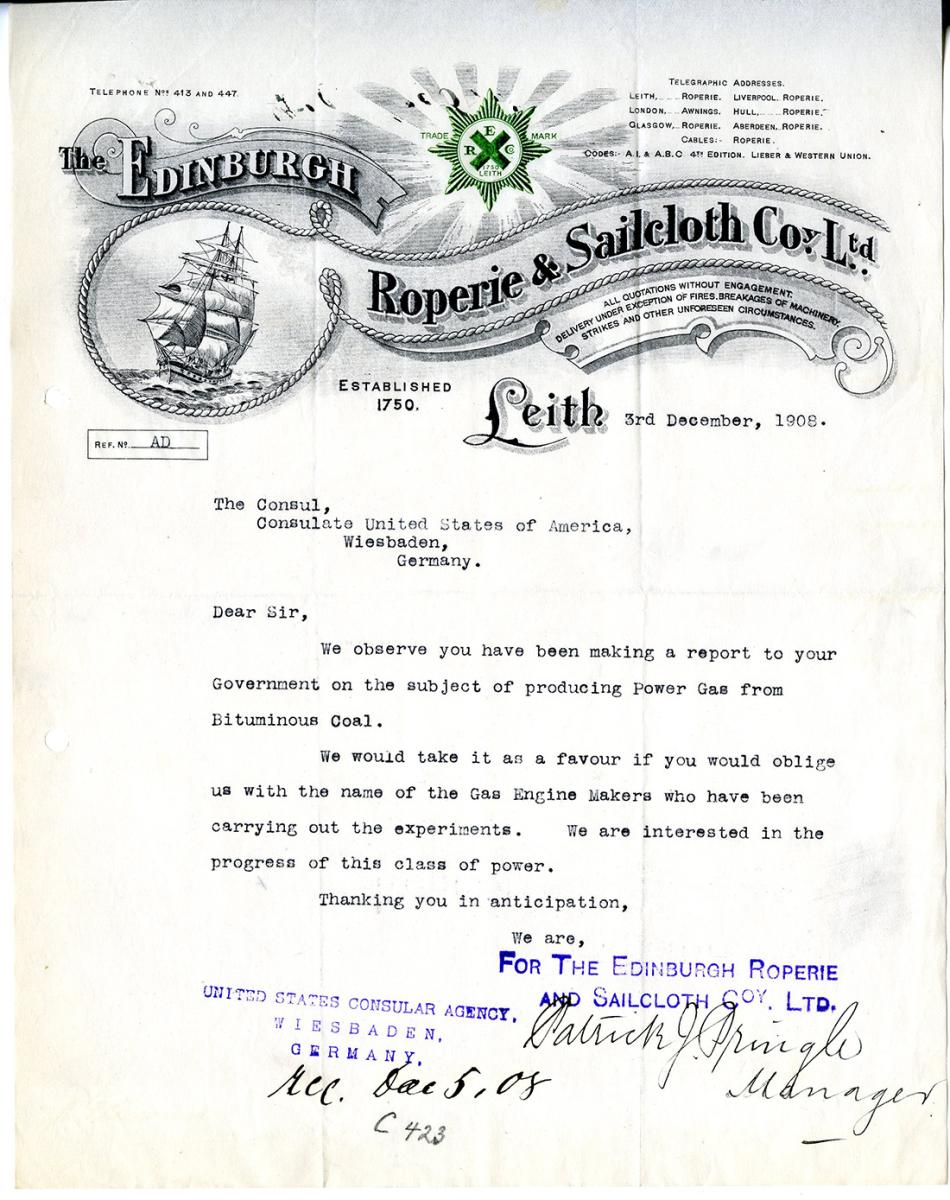 TELEPHONE Nos 413 AND 447.
TELEGRAPHIC ADDRESSES.
LEITH, ROPERIE. LIVERPOOL, ROPERIE.
LONDON, AWNINGS. HULL, ROPERIE.
GLASGOW, ROPERIE. ABERDEEN, ROPERIE.
CABLES:- ROPERIE.
CODES:- A.I. & A.B.C 4TH EDITION. LIEBER & WESTERN UNION.
TRADE MARK
E
R Co
1750
LEITH
The EDINBURGH
Roperie & Sailcloth Coy. Ltd.
ALL QUOTATIONS WITHOUT ENGAGEMENT.
DELIVERY UNDER EXCEPTION OF FIRES, BREAKAGES OF MACHINERY,
STRIKES AND OTHER UNFORESEEN CIRCUMSTANCES.
ESTABLISHED
1750.
Leith 3rd December, 1908.
REF. No. AD
The Consul,
Consulate United States of America,
Wiesbaden,
Germany.
Dear Sir,
We observe you have been making a report to your
Government on the subject of producing Power Gas from
Bituminous Coal.
We would take it as a favour if you would oblige
us with the name of the Gas Engine Makers who have been
carrying out the experiments. We are interested in the
progress of this class of power.
Thanking you in anticipation,
We are,
FOR THE EDINBURGH ROPERIE
AND SAILCLOTH COY. LTD.
Patrick J. Pringle
Manager
UNITED STATES CONSULAR AGENCY,
WIESBADEN,
GERMANY.
Rec. Dec 5, 08
C 423